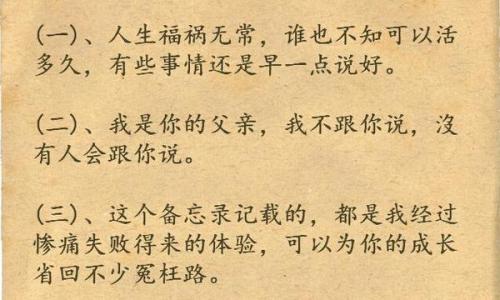 (一)、人生福祸无常，谁也不知可以活
多久，有些事情还是早一点说好。
(二)、我是你的父亲，我不跟你说，沒
有人会跟你说。
(三)、这个备忘录记载的，都是我经过
惨痛失败得来的体验，可以为你的成长
省回不少冤枉路。